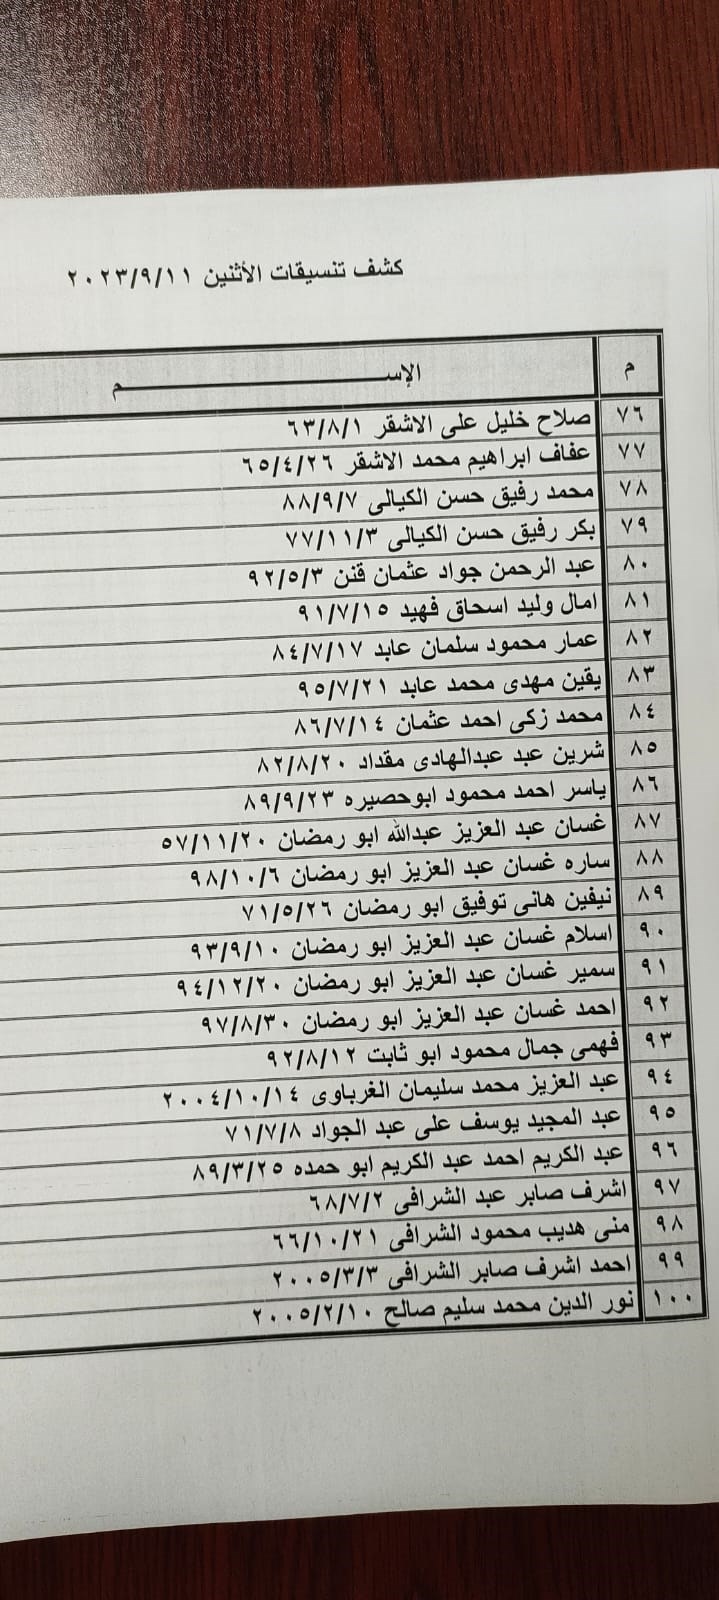 كشف تنسيقات الأثنين ٢٠٢٣/٩/١١
م الإســـــــــــم
٧٦ صلاح خليل على الاشقر ٦٣/٨/١
٧٧ عفاف ابراهيم محمد الاشقر ٦٥/٤/٢٦
٧٨ محمد رفيق حسن الكيالى ٨٨/٩/٧
٧٩ بكر رفيق حسن الكيالى ٧٧/١١/٣
٨٠ عبد الرحمن جواد عثمان قنن ٩٢/٥/٣
٨١ امال وليد اسحاق فهيد ٩١/٧/١٥
٨٢ عمار محمود سلمان عابد ٨٤/٧/١٧
٨٣ يقين مهدى محمد عابد ٩٥/٧/٢١
٨٤ محمد زكى احمد عثمان ٨٦/٧/١٤
٨٥ شرين عبد عبدالهادى مقداد ٨٢/٨/٢٠
٨٦ ياسر احمد محمود ابوحصيره ٨٩/٩/٢٣
٨٧ غسان عبد العزيز عبدالله ابو رمضان ٥٧/١١/٢٠
٨٨ ساره غسان عبد العزيز ابو رمضان ٩٨/١٠/٦
٨٩ نيفين هانى توفيق ابو رمضان ٧١/٥/٢٦
٩٠ اسلام غسان عبد العزيز ابو رمضان ٩٣/٩/١٠
٩١ سمير غسان عبد العزيز ابو رمضان ٩٤/١٢/٢٠
٩٢ احمد غسان عبد العزيز ابو رمضان ٩٧/٨/٣٠
٩٣ فهمى جمال محمود ابو ثابت ٩٢/٨/١٢
٩٤ عبد العزيز محمد سليمان الغرباوى ٢٠٠٤/١٠/١٤
٩٥ عبد المجيد يوسف على عبد الجواد ٧١/٧/٨
٩٦ عبد الكريم احمد عبد الكريم ابو حمده ٨٩/٣/٢٥
٩٧ اشرف صابر عبد الشرافى ٦٨/٧/٢
٩٨ منى هديب محمود الشرافى ٦٦/١٠/٢١
٩٩ احمد اشرف صابر الشرافى ٢٠٠٥/٣/٣
١٠٠ نور الدين محمد سليم صالح ٢٠٠٥/٢/١٠